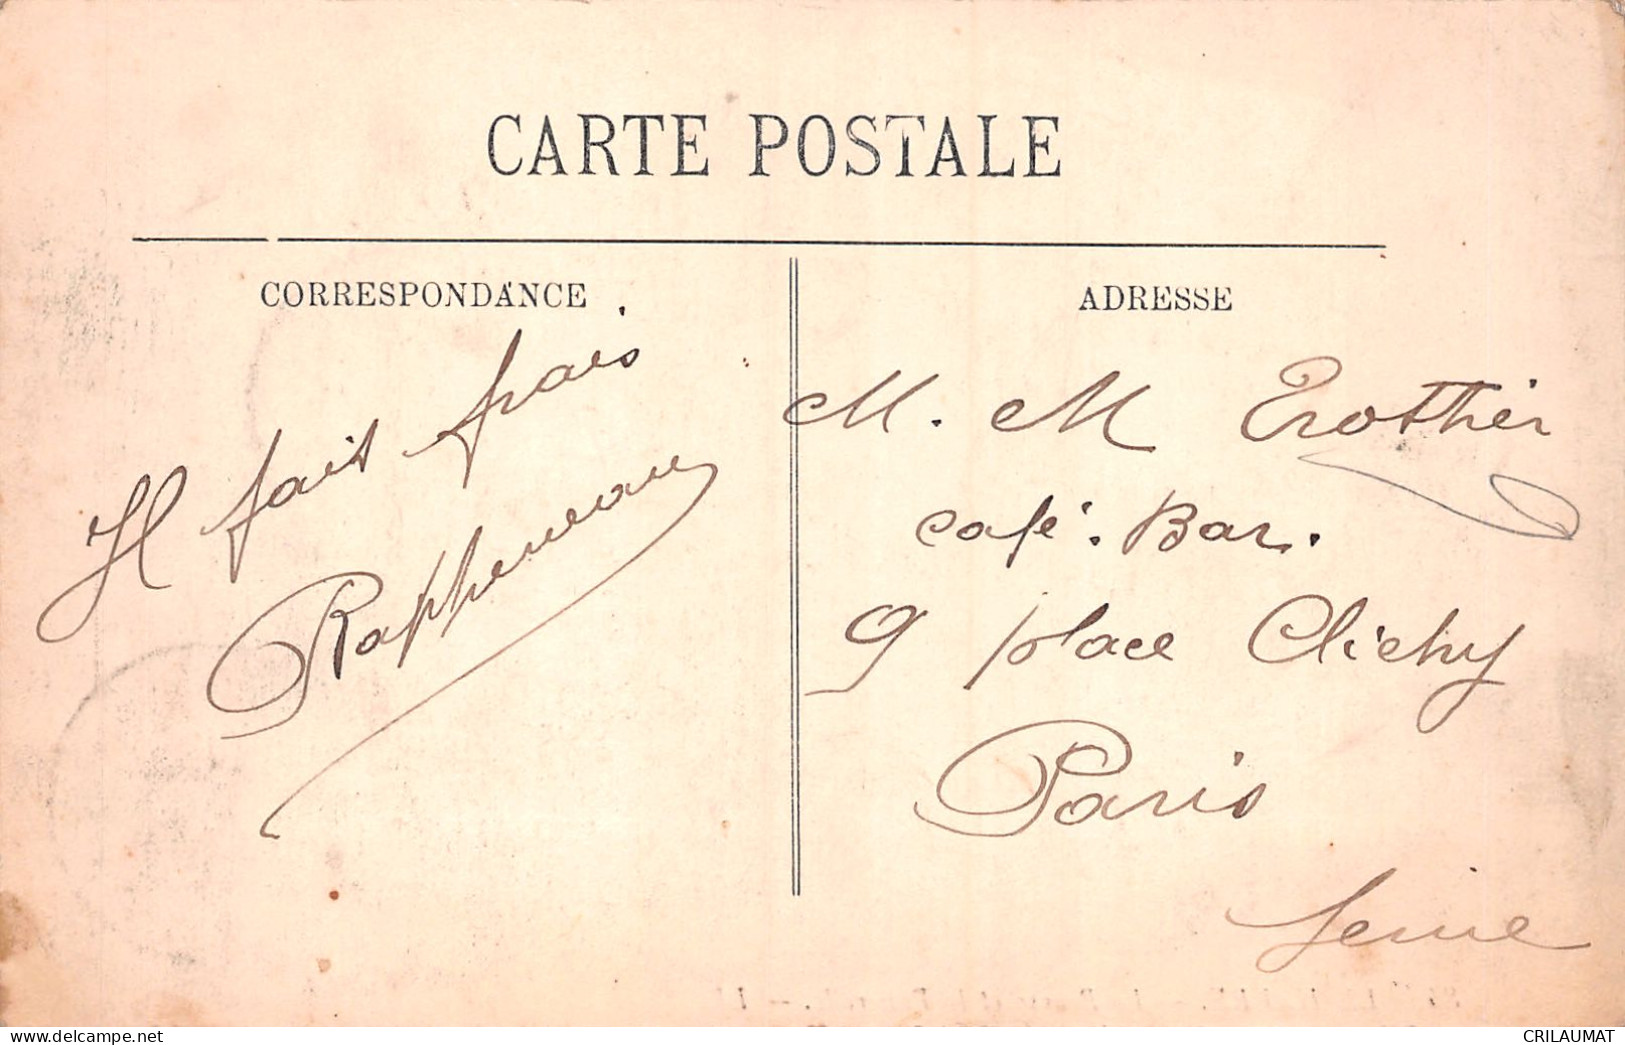 CARTE POSTALE
CORRESPONDANCE
Il fait frais
ADRESSE
M. M Trothier
café. Bar.
9 place Clichy
Paris
Seine
https://www.delcampe.net
CRILAUMAT